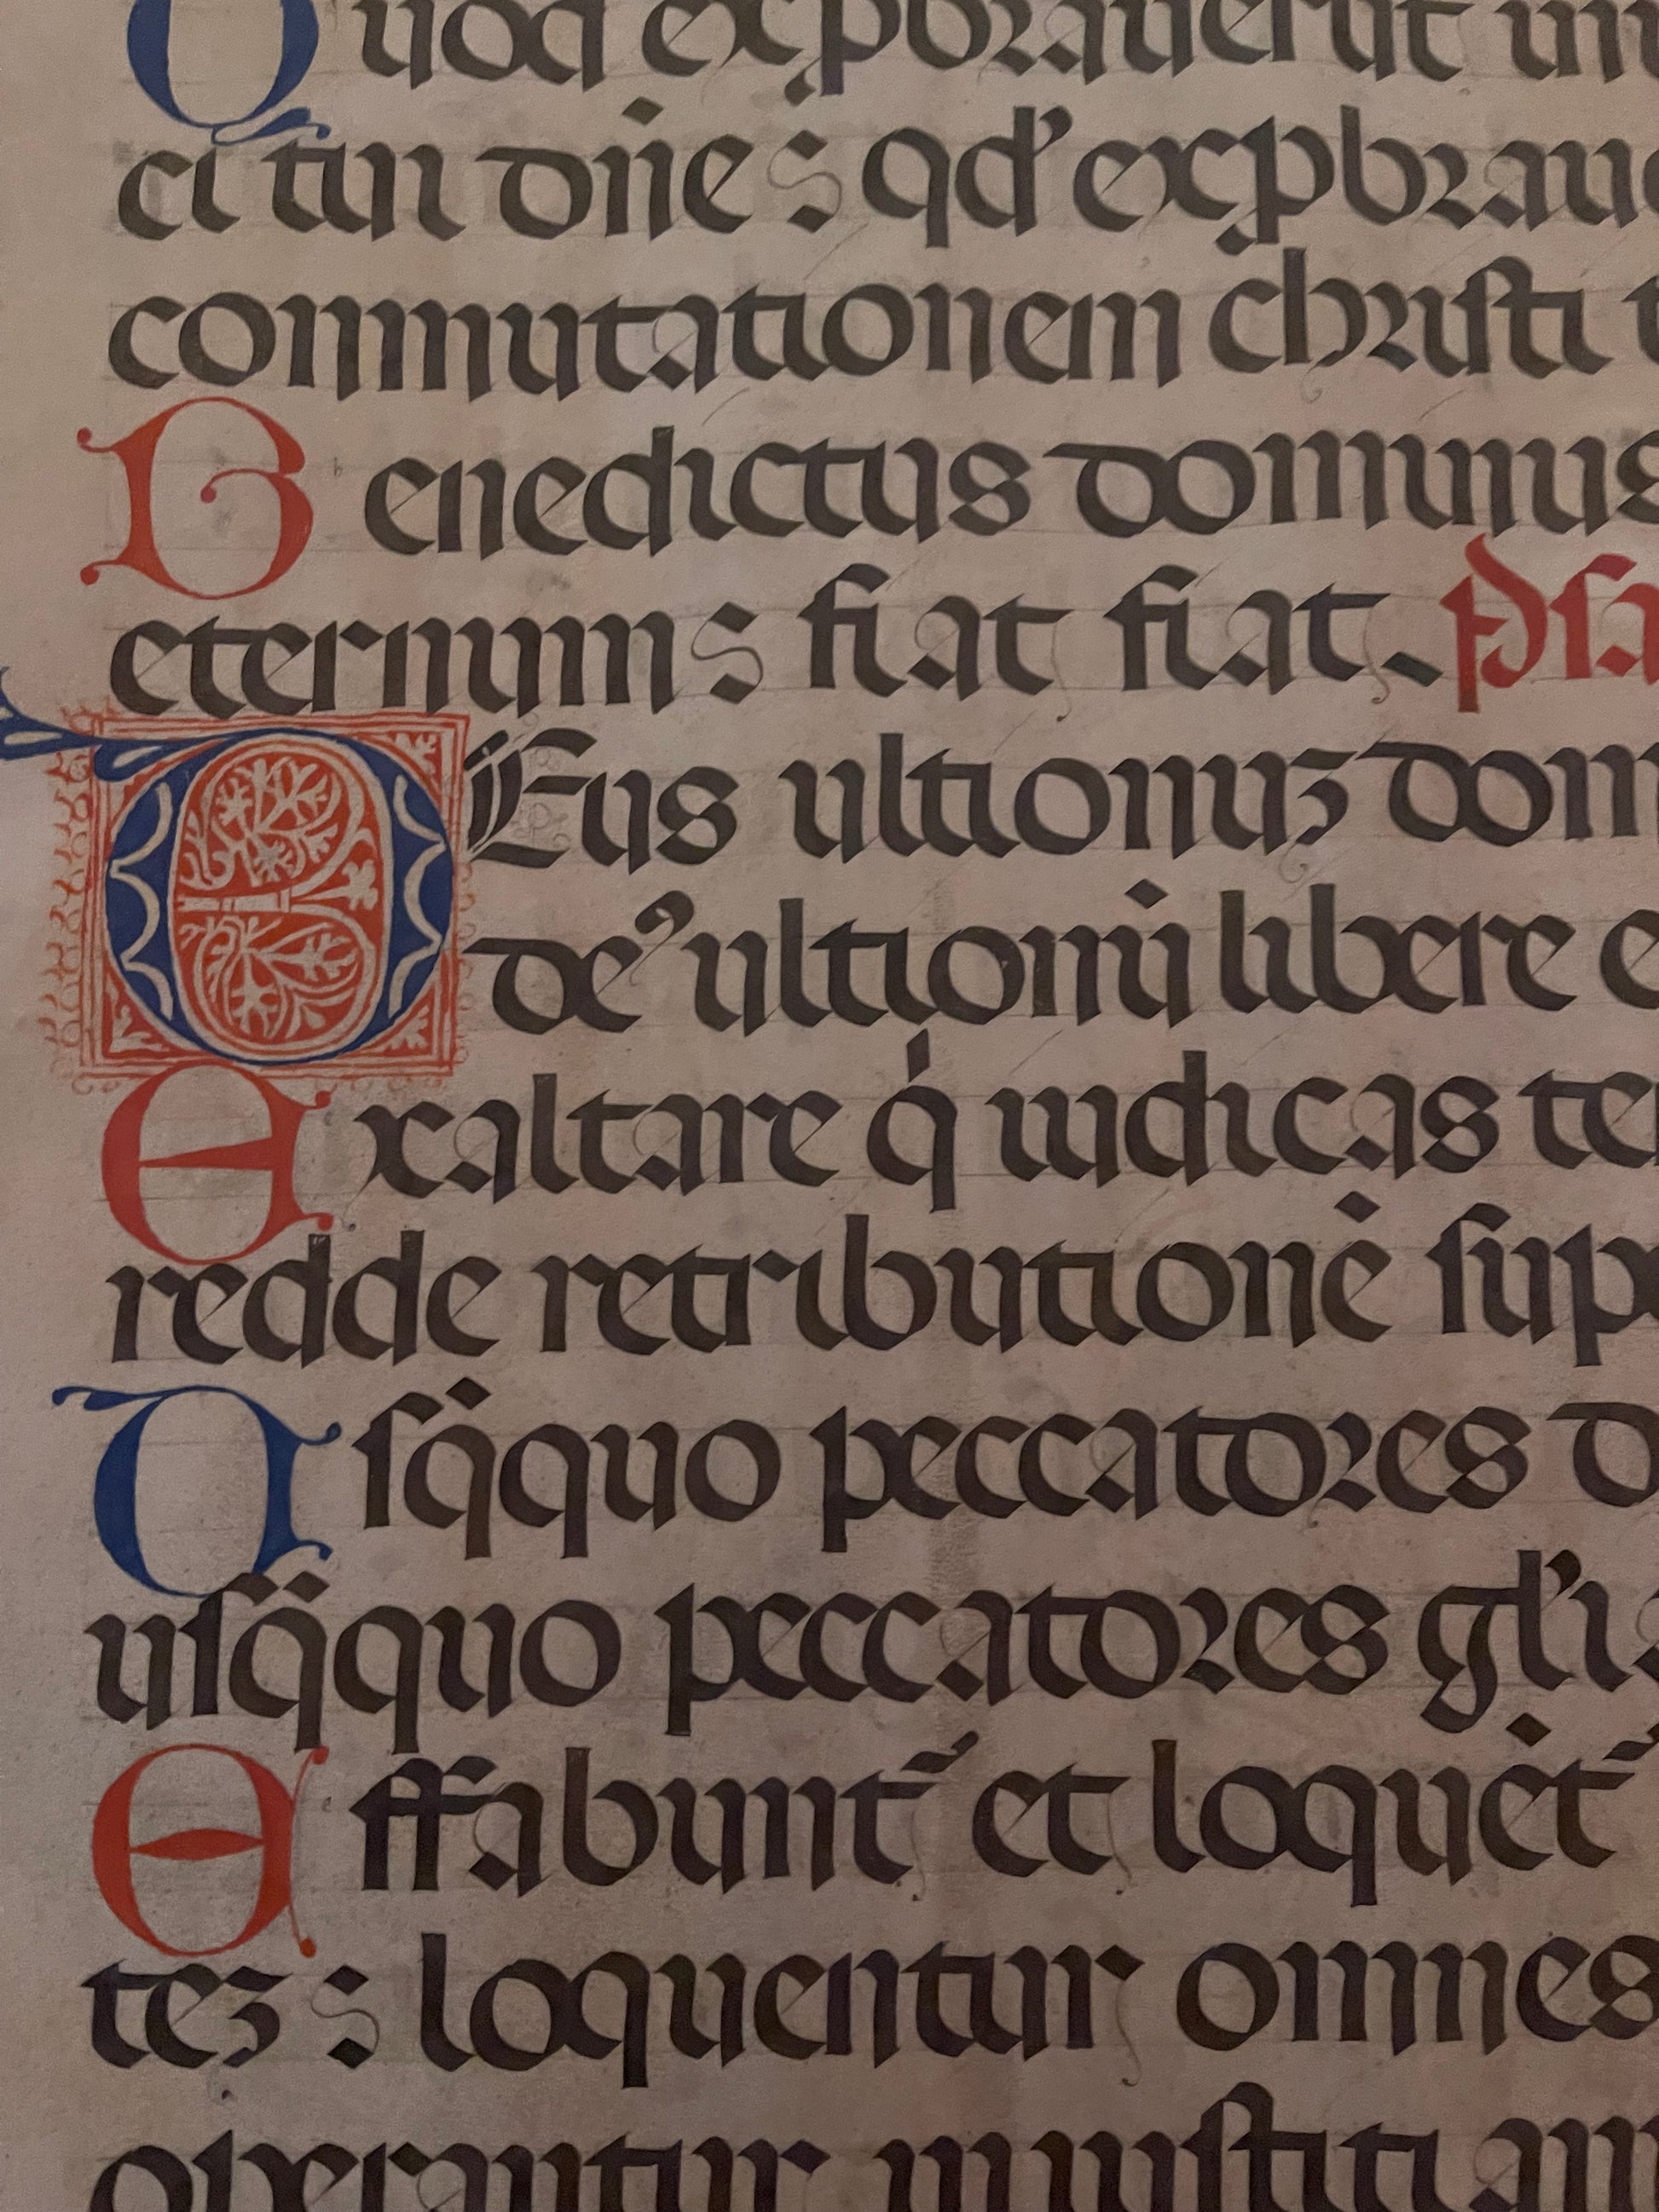 Quod exꝓbrauerūt ini
ci tui dn̄e : qd' exꝓbraue
conmutationem christi t
Benedictus dominus
eternum : fiat fiat. Psa
DEus ultionuꝫ dom
de' ultionū libere e
Exaltare q̇ iudicas ter
redde retributionē sup
Usq̄quo peccatores d
usq̄quo peccatores gl'i
Effabunt᷑ et loquēt᷑
teꝫ : loquentur omnes
operantur iniustitiam